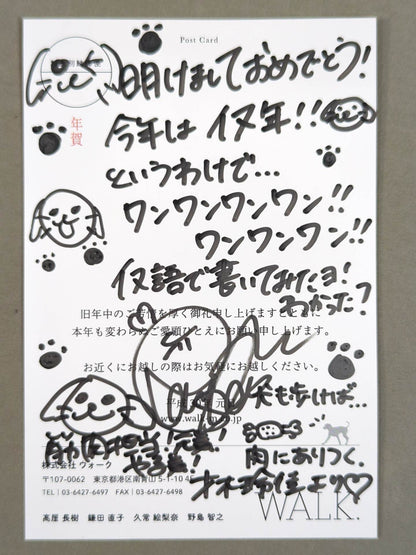 Post Card
明けましておめでとう!
年賀
今年は イヌ年!!
というわけで...
ワンワンワンワン!!
ワンワンワン!!
イヌ語で書いてみたヨ!
わかった?
旧年中のご芳情を厚く御礼申し上げますとともに
本年も変わらぬご愛顧ひとえにお願い申し上げます。
お近くにお越しの際はお気軽にお越しください。
平成 30年 元旦
犬も歩けば...
筋肉担当
肉にありつく。
より♡
株式会社 ウォーク
〒107-0062 東京都港区南青山 5-1-10 4F
TEL | 03-6427-6497 FAX | 03-6427-6498
WALK.
高屋 長樹 鎌田 直子 久常 絵梨奈 野島 智之